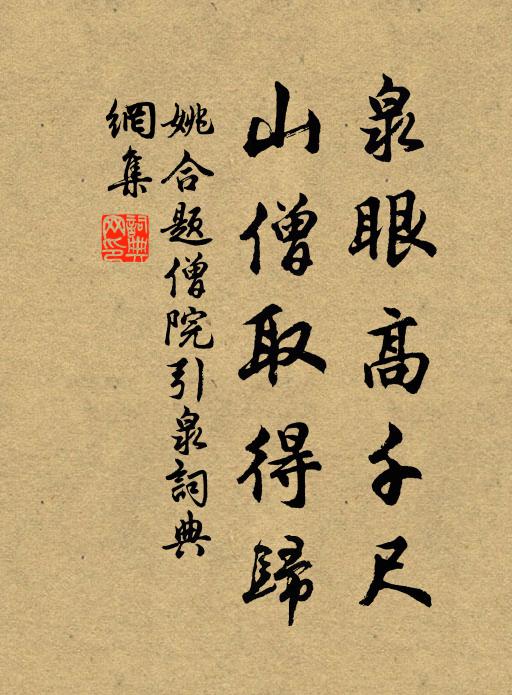 泉眼高千尺
山僧取得歸
姚合題僧院引泉詞典
網集
詞典網印